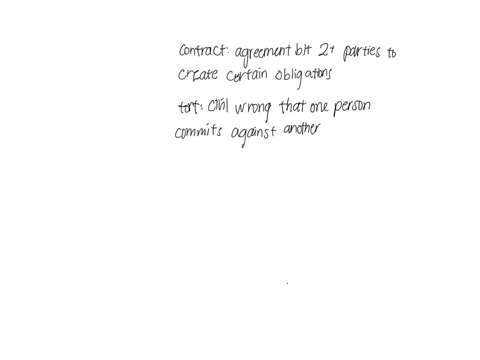 contract: agreement b/t 2+ parties to
create certain obligations
tort: civil wrong that one person
commits against another